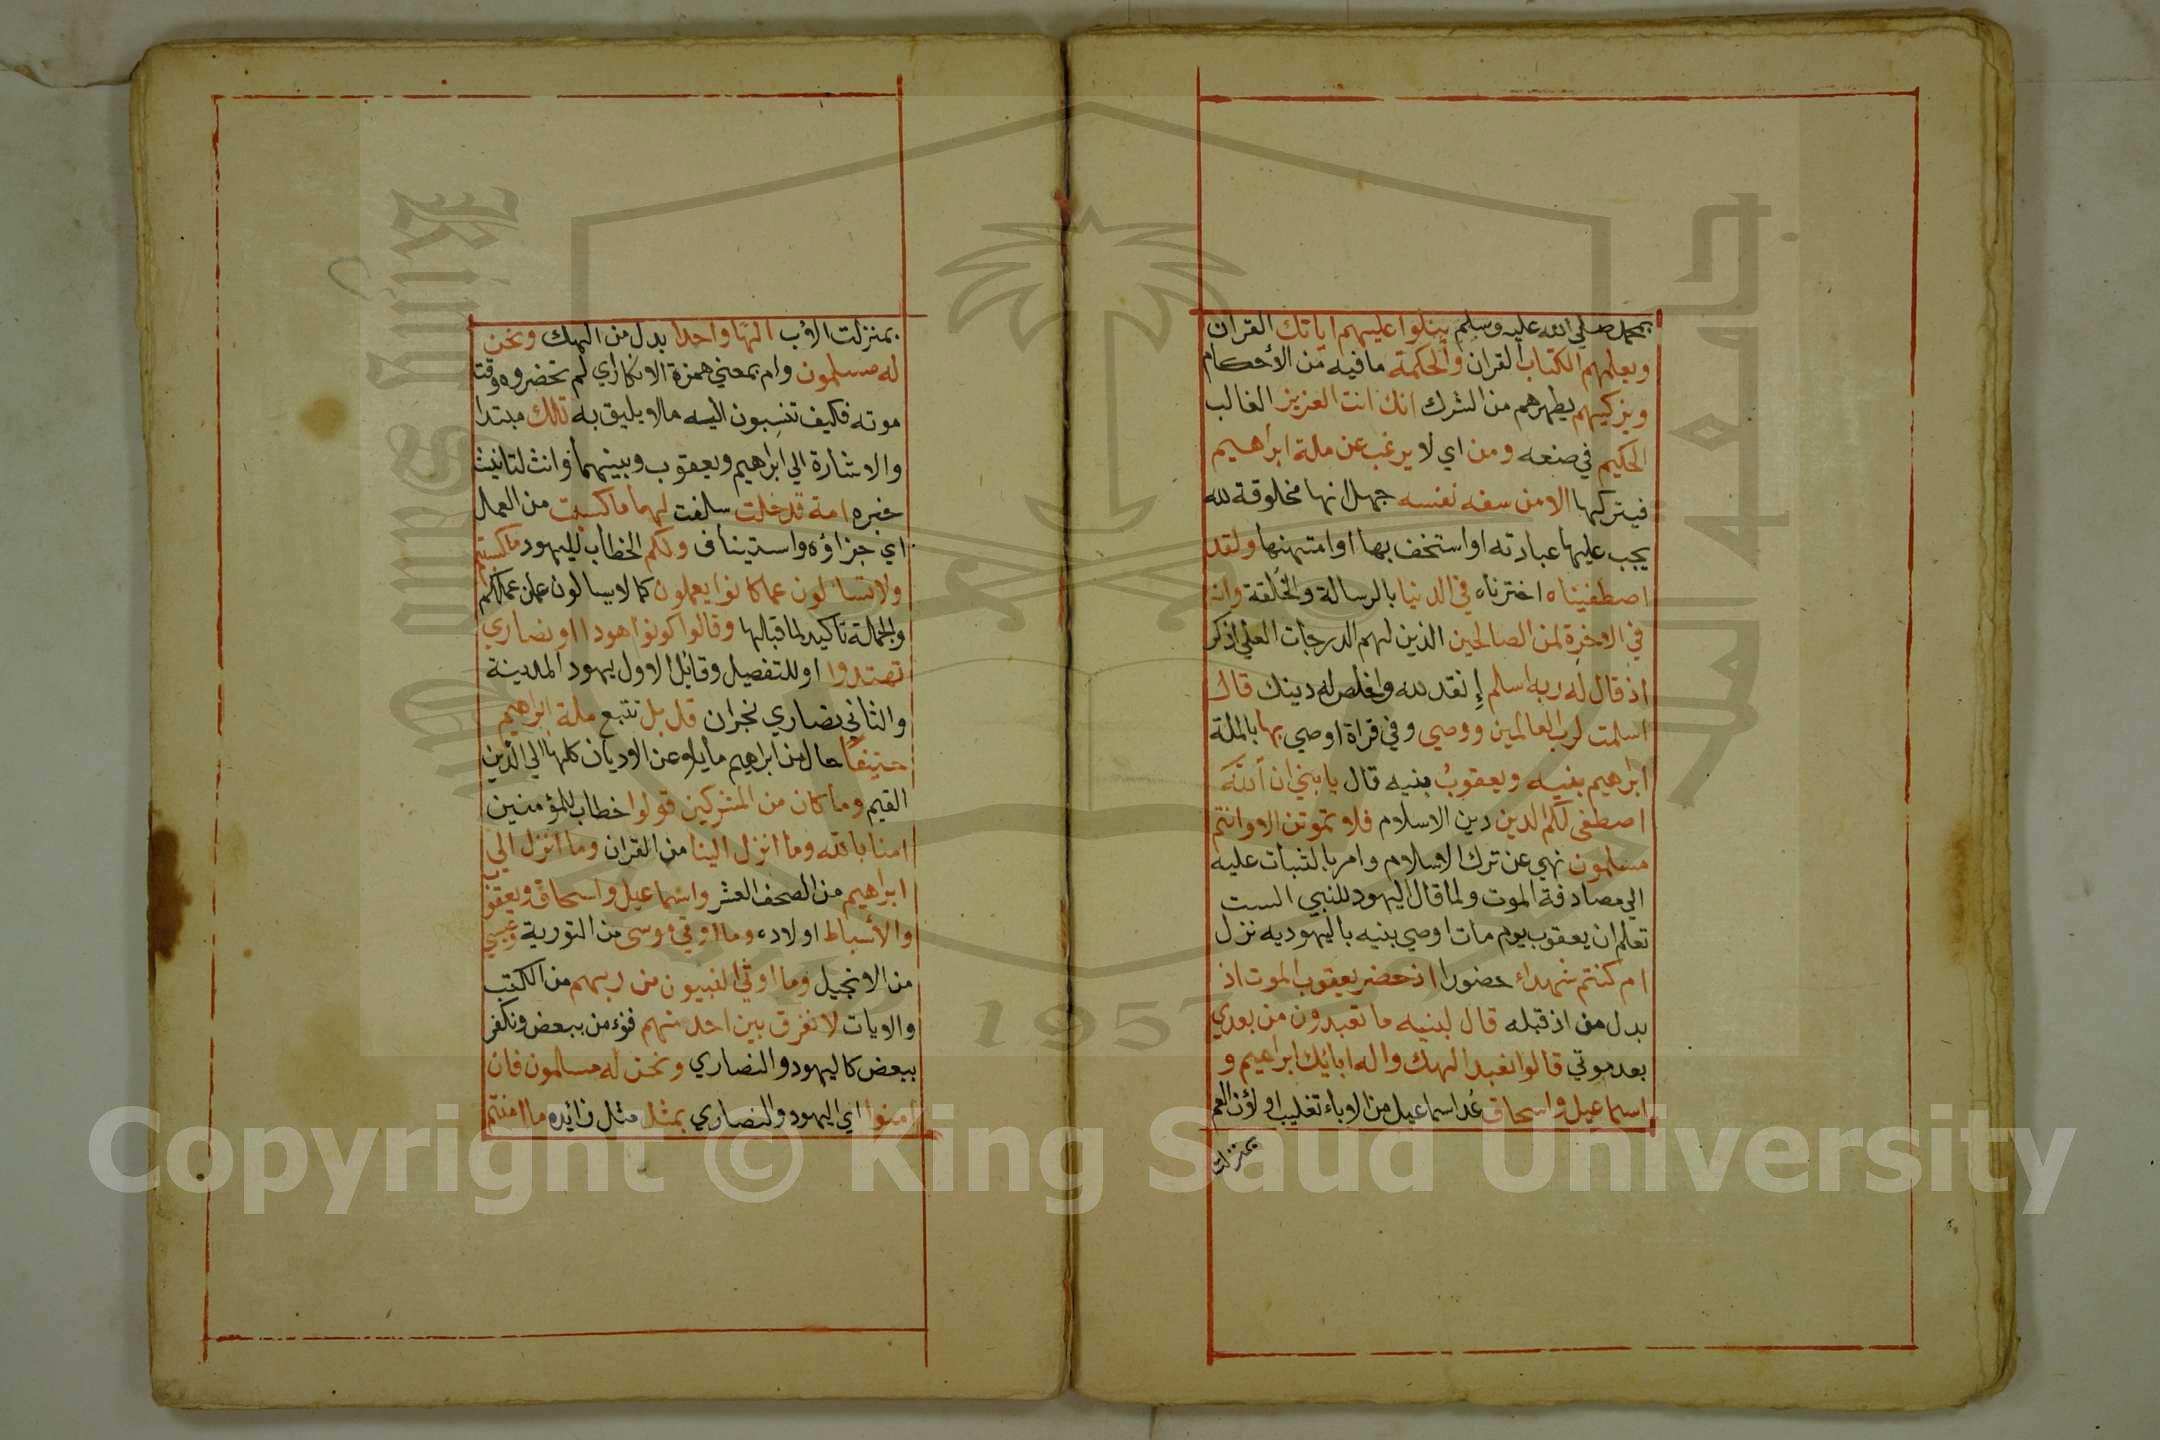 بمحمد صلي الله عليه وسلم يتلوا عليهم اياتك القران
ويعلمهم الكتاب القران والحكمة ما فيه من الأحكام
ويزكيهم يطهرهم من الشرك انك انت العزيز الغالب
الحكيم في صنعه ومن اي لا يرغب عن ملة ابراهيم
فيتركها الا من سفه نفسه جهل انها مخلوقة لله
يجب عليها عبادته او استخف بها او امتهنها ولقد
اصطفيناه اخترناه في الدنيا بالرسالة والخلقة وانه
في الاخرة لمن الصالحين الذين لهم الدرجات العلي اذكر
اذ قال له ربه اسلم إنقد لله واخلص له دينك قال
اسلمت لرب العالمين ووصي وفي قراة اوصي بها بالملة
ابراهيم بنيه ويعقوبُ بنيه قال يا بني ان اللّه
اصطفي لكم الدين دين الاسلام فلا تموتن الا وانتم
مسلمون نهي عن ترك الاسلام وامر بالثبات عليه
الي مصادفة الموت ولما قال اليهود للنبي الست
تعلم ان يعقوب يوم مات اوصي بنيه باليهوديه نزل
ام كنتم شهداء حضورا اذ حضر يعقوب الموت اذ
بدل من اذ قبله قال لبنيه ما تعبدون من بعدي
بعد موتي قالوا نعبد الهك واله ابائك ابراهيم و
اسماعيل واسحاق عُد اسماعيل من الاباء تغليب اولأن العم
بمنزلت
بمنزلت الأب الهًا واحدا بدل من الهك ونحن
له مسلمون وام بمعني همزة الانكار اي لم تحضروه وقت
موته فكيف تنسبون اليه مالا يليق به تلك مبتدا
والاشارة الي ابراهيم ويعقوب وبينهما وانث لتانيث
خبره امة قد خلت سلفت لها ما كسبت من العمل
اي جزاؤه واستيناف ولكم الخطاب لليهود ما كسبتم
ولا تسالون عما كانوا يعملون كما لا يسالون عن عملكم
والجملة تاكيد لما قبلها وقالوا كونوا هودا او نصاري
تهتدوا او للتفصيل وقائل الاول يهود المدينة
والثاني نصاري نجران قل بل نتبع ملة ابراهيم
حنيفاً حال من ابراهيم مايلا عن الاديان كلها الي الدين
القيم وما كان من المشركين قولوا خطاب للمؤمنين
امنا بالله وما انزل الينا من القران وما انزل الي
ابراهيم من الصحف العشر واسماعيل واسحاق ويعقوب
والأسباط اولاده وما اوتي موسى من التورية وعيسي
من الانجيل وما اوتي النبيون من ربهم من الكتب
والايات لا نفرق بين احد منهم فنؤمن ببعض ونكفر
ببعض كاليهود والنصاري ونحن له مسلمون فان
امنوا اي اليهود والنصاري بمثل مثل زائده ما امنتم
Copyright © King Saud University
جامعة الملك سعود
King Saud University
1957